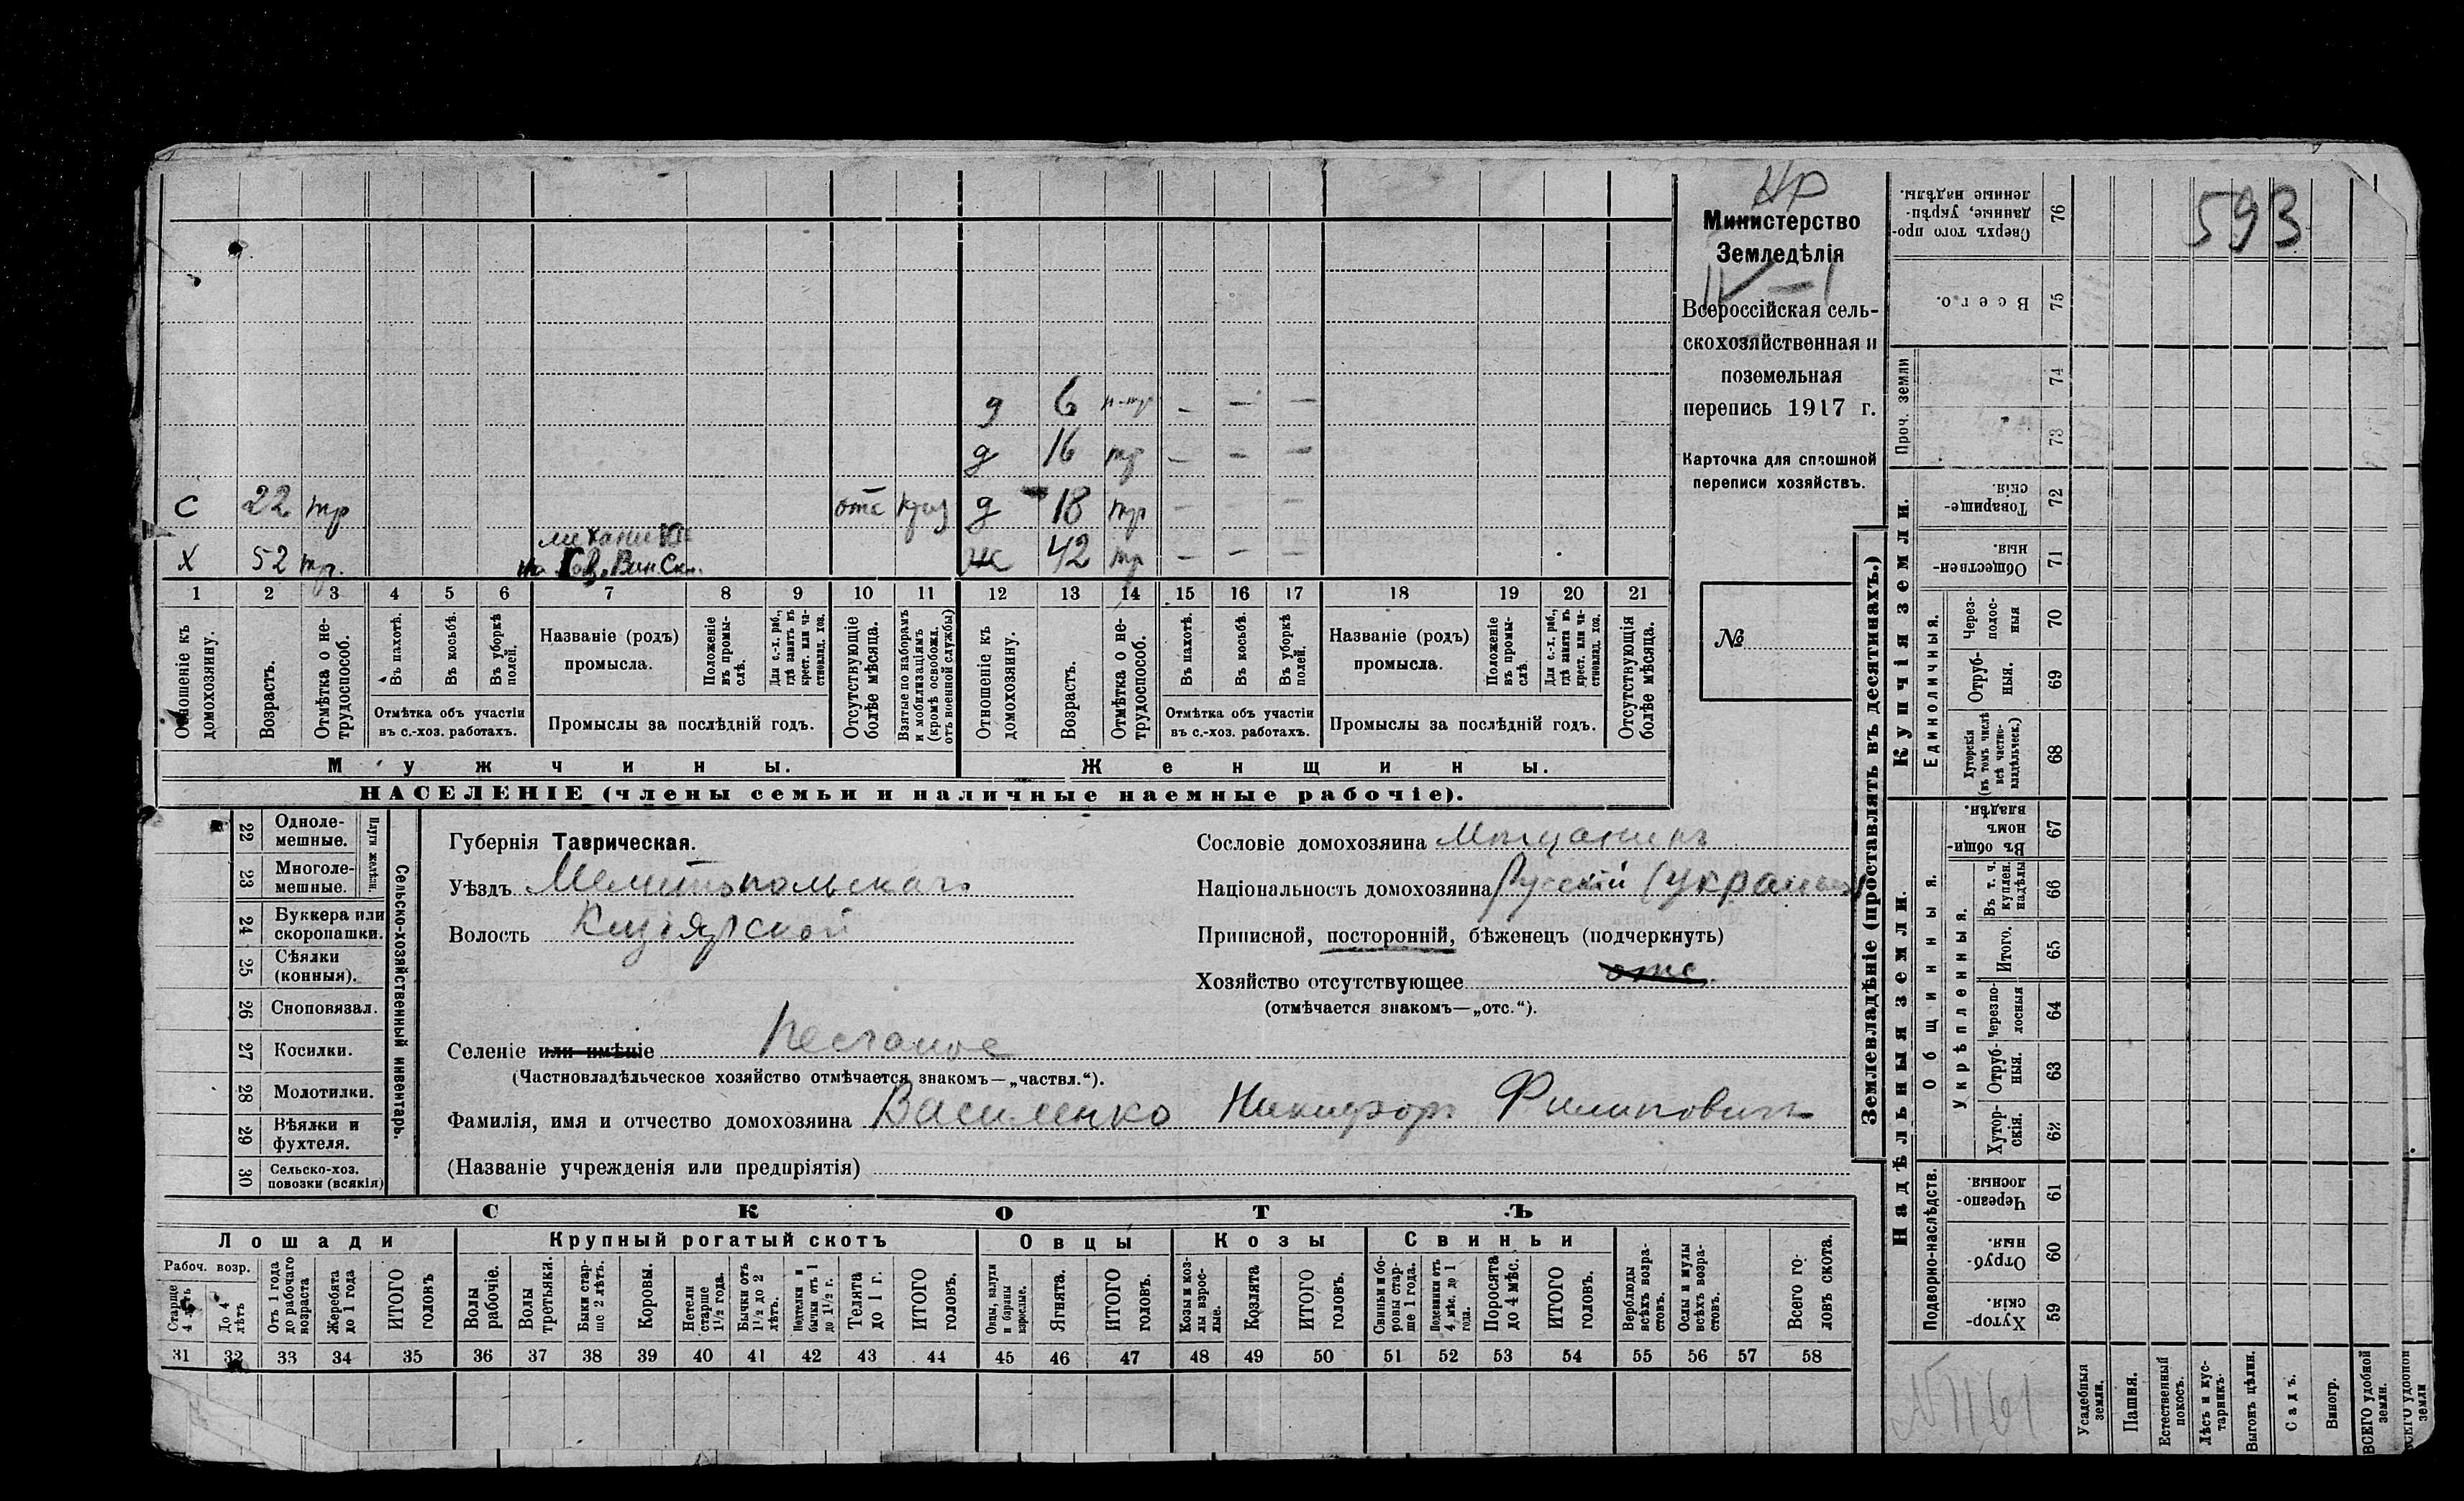 НР
Министерство
Земледѣлія
IV — 1
Всероссійская сель-
скохозяйственная и
поземельная
перепись 1917 г.
Карточка для сплошной
переписи хозяйствъ.
№
593
д 6 н-тр - - -
д 16 тр - - -
С 22 тр отс д 18 тр - - -
механик
Х 52 тр. ж 42 тр - - -
1 2 3 4 5 6 7 8 9 10 11 12 13 14 15 16 17 18 19 20 21
Отношеніе къ домохозяину.
Возрастъ.
Отмѣтка о не-трудоспособ.
Въ пахотѣ.
Въ косьбѣ.
Въ уборкѣ полей.
Отмѣтка объ участіи въ с.-хоз. работахъ.
Названіе (родъ) промысла.
Положеніе въ промы-слѣ.
Для с.-х. раб., гдѣ занятъ въ крест. или ча-стновлад. хоз.
Промыслы за послѣдній годъ.
Отсутствующіе болѣе мѣсяца.
Взятые по наборамъ и мобилизаціямъ (кромѣ освобожд. отъ военной службы)
Отношеніе къ домохозяину.
Возрастъ.
Отмѣтка о не-трудоспособ.
Въ пахотѣ.
Въ косьбѣ.
Въ уборкѣ полей.
Отмѣтка объ участіи въ с.-хоз. работахъ.
Названіе (родъ) промысла.
Положеніе въ промы-слѣ.
Для с.-х. раб., гдѣ занята въ крест. или ча-стновлад. хоз.
Промыслы за послѣдній годъ.
Отсутствующія болѣе мѣсяца.
Мужчины. Женщины.
НАСЕЛЕНІЕ (члены семьи и наличные наемные рабочіе).
22 Одноле-мешные.
23 Многоле-мешные.
Плуги желѣзн.
24 Буккера или скоропашки.
25 Сѣялки (конныя).
26 Сноповязал.
27 Косилки.
28 Молотилки.
29 Вѣялки и фухтеля.
30 Сельско-хоз. повозки (всякія)
Сельско-хозяйственный инвентарь.
Губернія Таврическая.
Уѣздъ Мелитопольскаго
Волость Кизіярской
Селеніе или имѣніе Песчаное
(Частновладѣльческое хозяйство отмѣчается знакомъ—„частвл.“).
Сословіе домохозяина Мѣщанинъ
Національность домохозяина Русскій (украинецъ)
Приписной, посторонній, бѣженецъ (подчеркнуть)
Хозяйство отсутствующее отс.
(отмѣчается знакомъ—„отс.“).
Фамилія, имя и отчество домохозяина Василенко Никифоръ Филиповичъ
(Названіе учрежденія или предпріятія)
СКОТЪ
Лошади Крупный рогатый скотъ Овцы Козы Свиньи
Рабоч. возр.
Старше 4 лѣтъ
До 4 лѣтъ
Отъ 1 года до рабочаго возраста
Жеребята до 1 года
ИТОГО головъ
Волы рабочіе.
Волы третьяки.
Быки стар-ше 2 лѣтъ.
Коровы.
Нетели старше 1½ года.
Бычки отъ 1½ до 2 лѣтъ.
Нетелки и бычки отъ 1 до 1½ г.
Телята до 1 г.
ИТОГО головъ.
Овцы, валухи и бараны взрослые.
Ягнята.
ИТОГО головъ.
Козы и коз-лы взрос-лые.
Козлята
ИТОГО головъ.
Свиньи и бо-ровы стар-ше 1 года.
Подсвинки отъ 4 мѣс. до 1 года.
Поросята до 4 мѣс.
ИТОГО головъ.
Верблюды всѣхъ возра-стовъ.
Ослы и мулы всѣхъ возра-стовъ.
Всего го-ловъ скота.
31 32 33 34 35 36 37 38 39 40 41 42 43 44 45 46 47 48 49 50 51 52 53 54 55 56 57 58
Землевладѣніе (проставлять въ десятинахъ.)
Сверхъ того про-данные, укрѣп-ленные надѣлы. 76
Всего. 75
Проч. земли 74
73
Купчія земли.
Товарище-скія. 72
Обществен-ныя. 71
Единоличныя.
Через-полос-ныя 70
Отруб-ныя. 69
Хуторскія (въ томъ числѣ всѣ частно-владѣльческ.) 68
Надѣльныя земли.
Общинныя.
Въ общи-номъ владѣн. 67
Укрѣпленныя.
Въ т. ч. куплен. надѣлы 66
Итого. 65
Черезпо-лосныя 64
Отруб-ныя. 63
Хутор-скія. 62
Подворно-наслѣдств.
Черезпо-лосныя. 61
Отруб-ныя. 60
Хутор-скія. 59
№ 1161
Усадебныя земли.
Пашня.
Естественный покосъ.
Лѣсъ и кус-тарникъ.
Выгонъ цѣлин.
Садъ.
Виногр.
ВСЕГО удобной земли.
ВСЕГО удобной земли